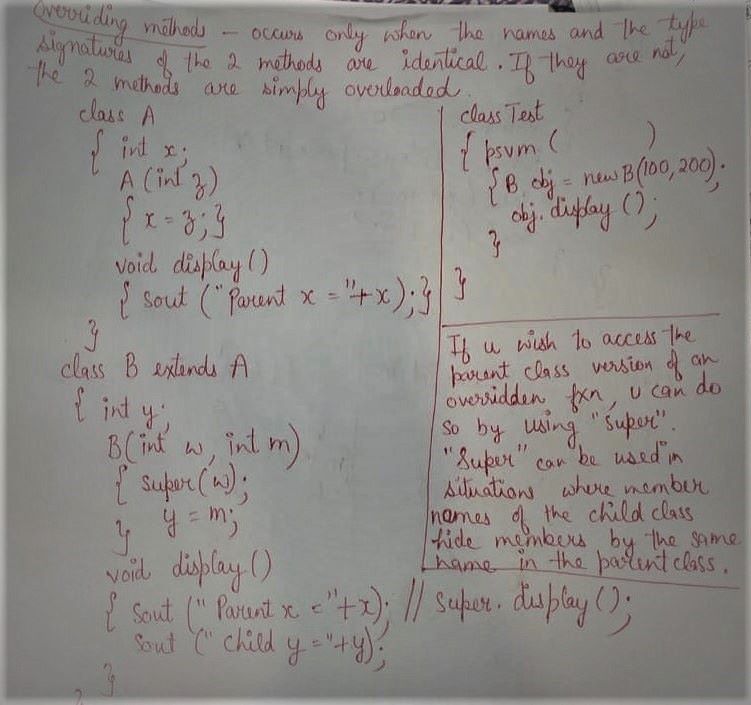 Overriding methods - occurs only when the names and the type
signatures of the 2 methods are identical. If they are not,
the 2 methods are simply overloaded.
class A
{ int x;
A (int z)
{ x = z; }
void display ()
{ sout ("Parent x = "+x); }
}
class B extends A
{ int y;
B(int w, int m)
{ super(w);
y = m;
}
void display ()
{ sout (" Parent x = "+x); // super. display ();
sout (" child y = "+y);
}
class Test
{ psvm ( )
{ B obj = new B(100, 200);
obj. display ();
}
}
If u wish to access the
parent class version of an
overridden fxn, u can do
so by using "super".
"Super" can be used in
situations where member
names of the child class
hide members by the same
name in the parent class.